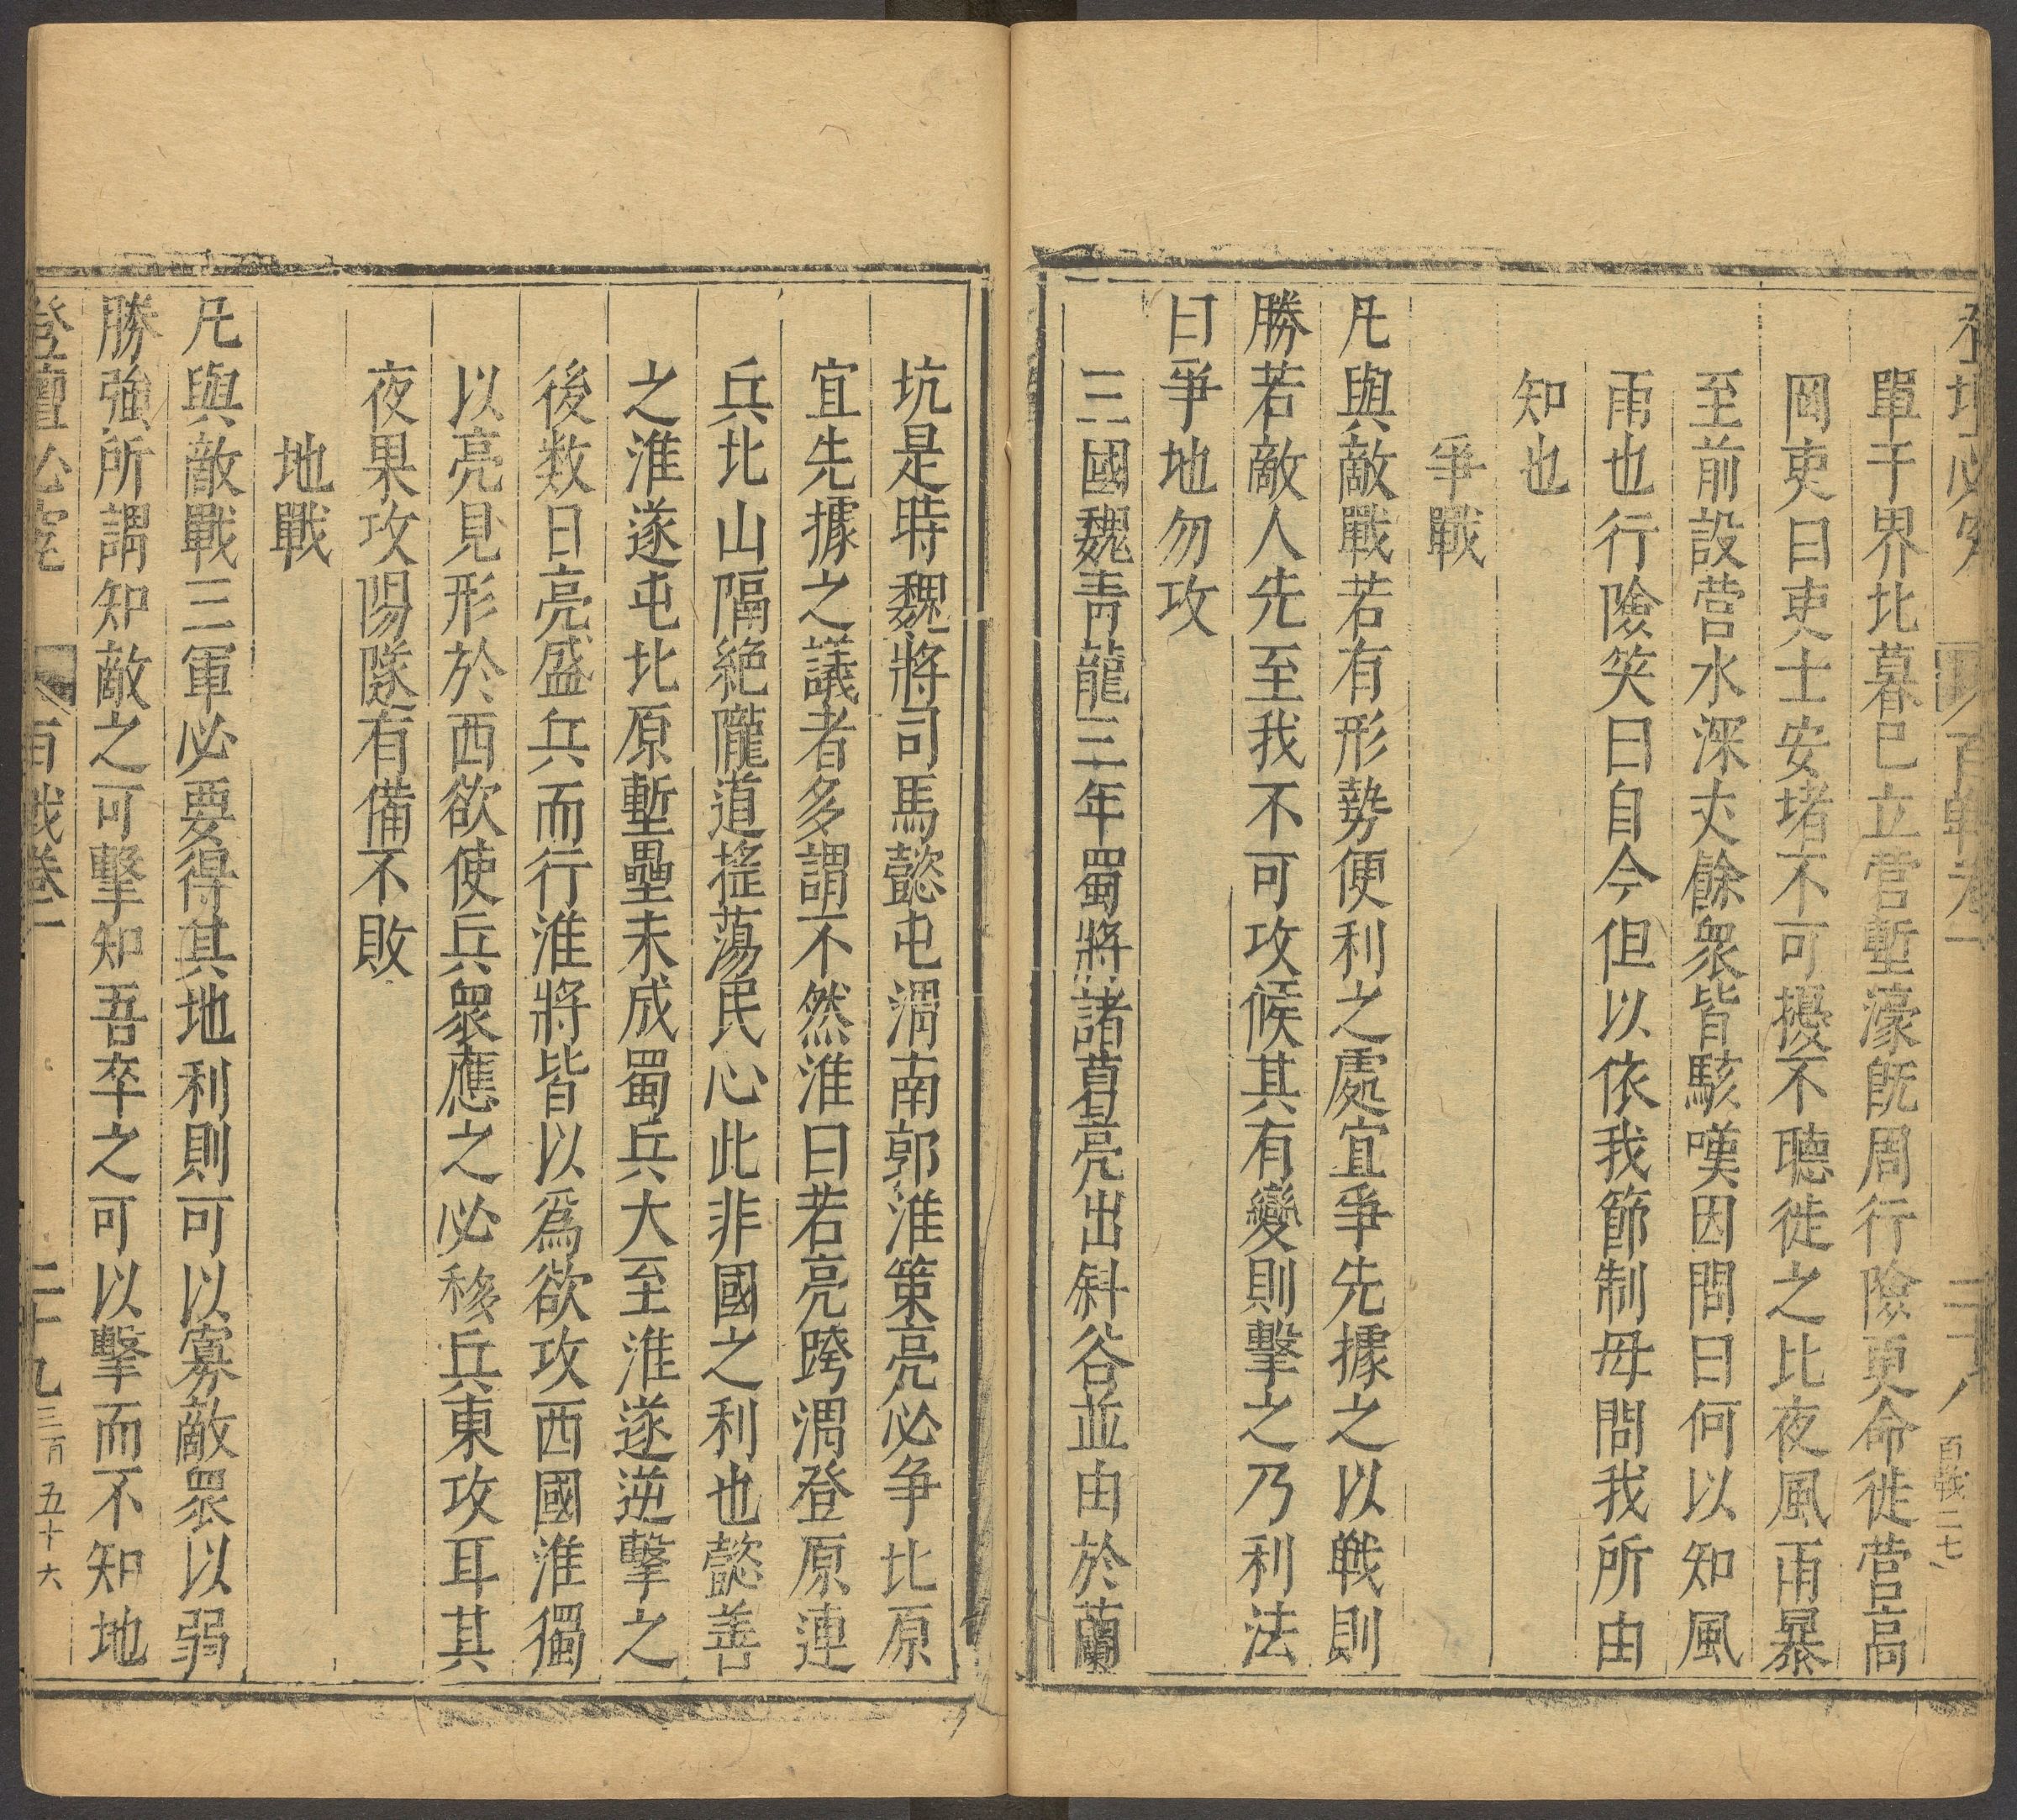 登壇必究 百戰卷一 二十八 百戰二七
單于界北暮已立營塹濠既周行險更命徙營高
岡吏曰吏士安堵不可擾不聽徙之比夜風雨暴
至前設營水深丈餘衆皆駭嘆因問曰何以知風
雨也行險笑曰自今但以依我節制毋問我所由
知也
爭戰
凡與敵戰若有形勢便利之處宜爭先據之以戰則
勝若敵人先至我不可攻候其有變則擊之乃利法
曰爭地勿攻
三國魏青龍二年蜀將諸葛亮出斜谷並由於蘭
坑是時魏將司馬懿屯渭南郭淮策亮必争北原
宜先據之議者多謂不然淮曰若亮跨渭登原連
兵北山隔絶隴道揺蕩民心此非國之利也懿善
之淮遂屯北原塹壘未成蜀兵大至淮遂逆擊之
後数日亮盛兵而行淮將皆以爲欲攻西國淮獨
以亮見形於西欲使兵衆應之必移兵東攻耳其
夜果攻陽隧有備不敗
地戰
凡與敵戰三軍必要得其地利則可以寡敵衆以弱
勝強所謂知敵之可擊知吾卒之可以擊而不知地
登壇必究 百戰卷一 二十九 三百五十六